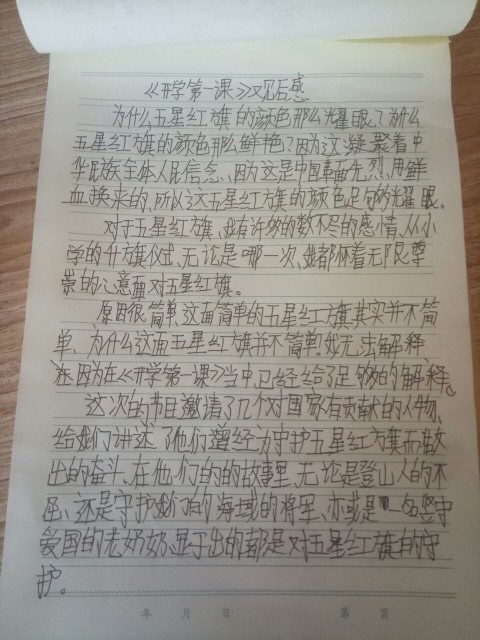 《开学第一课》观后感
为什么五星红旗的颜色那么耀眼？为什么
五星红旗的颜色那么鲜艳？因为这凝聚着中
华民族全体人民信念、因为这是中国革命先烈用鲜
血换来的，所以这五星红旗的颜色足够耀眼。
对于五星红旗，我有许多的数不尽的感情，从小
学的升旗仪式，无论是哪一次，我都怀着无限尊
崇的心意面对五星红旗。
原因很简单，这面简单的五星红旗其实并不简
单，为什么这面五星红旗并不简单，我无法解释
因为在《开学第一课》当中，已经给了足够的解释。
这次的节目邀请了几个对国家有贡献的人物，
给我们讲述了他们曾经为守护五星红旗而做
出的奋斗、在他们的的故事里，无论是登山人的不
屈、还是守护我们的海域的将军、亦或是一名坚守
爱国的老奶奶、显于出的都是对五星红旗的守
护。
年 月 日 第 页